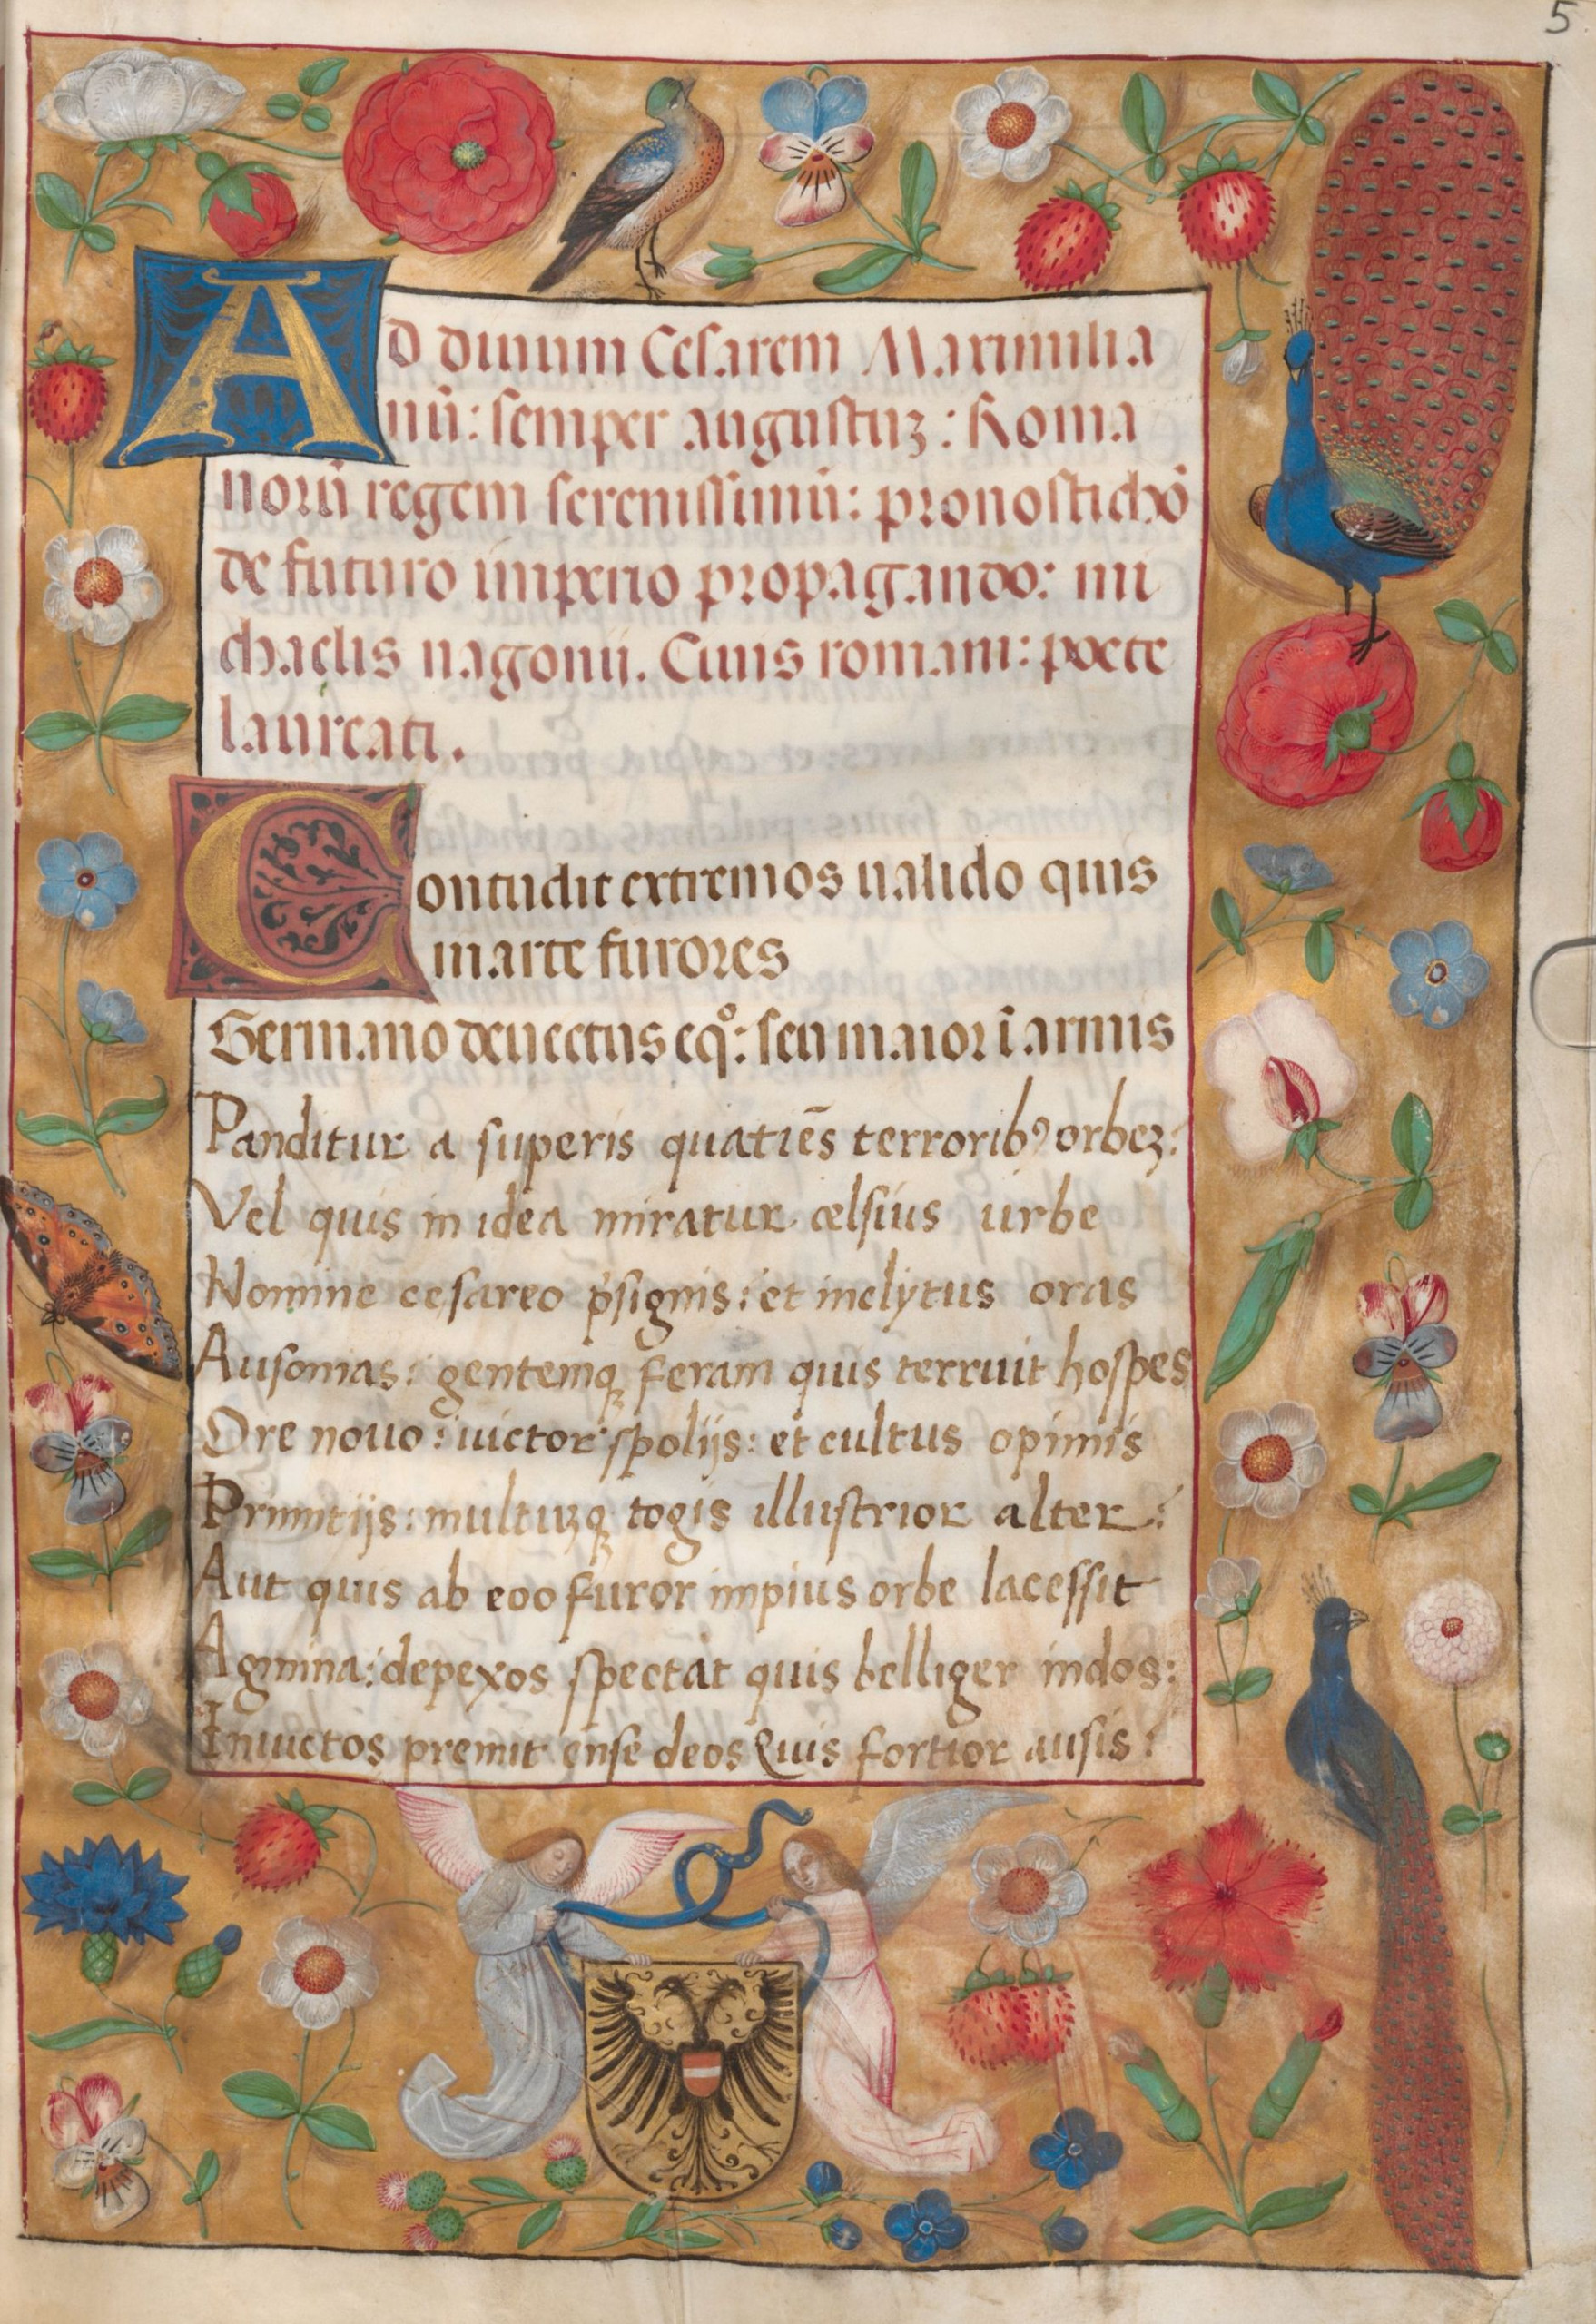 5
Ad diuum Cesarem Maximilia
nũ: semper augustuʒ: Roma
norũ regem serenissimũ: pronostichõ
de futuro imperio propagando: mi
chaelis nagonij. Ciuis romani: poete
laureati.
Contudit extremos ualido quis
marte furores
Germano deuectus eqº: seu maior ĩ armis
Panditur a superis quatiẽs terroribꝰ orbeʒ:
Vel quis in idea miratur celsius urbe
Nomine cesareo p̃signis: et inclytus oras
Ausonias: gentemqꝫ feram quis terruit hospes
Ore nouo: uictor spolijs: et cultus opimis
Primitijs: multuʒqꝫ togis illustrior alter:
Aut quis ab eoo furor impius orbe lacessit
Agmina: depexos spectat quis belliger indos:
Inuictos premit ense deos Quis fortior ausis: